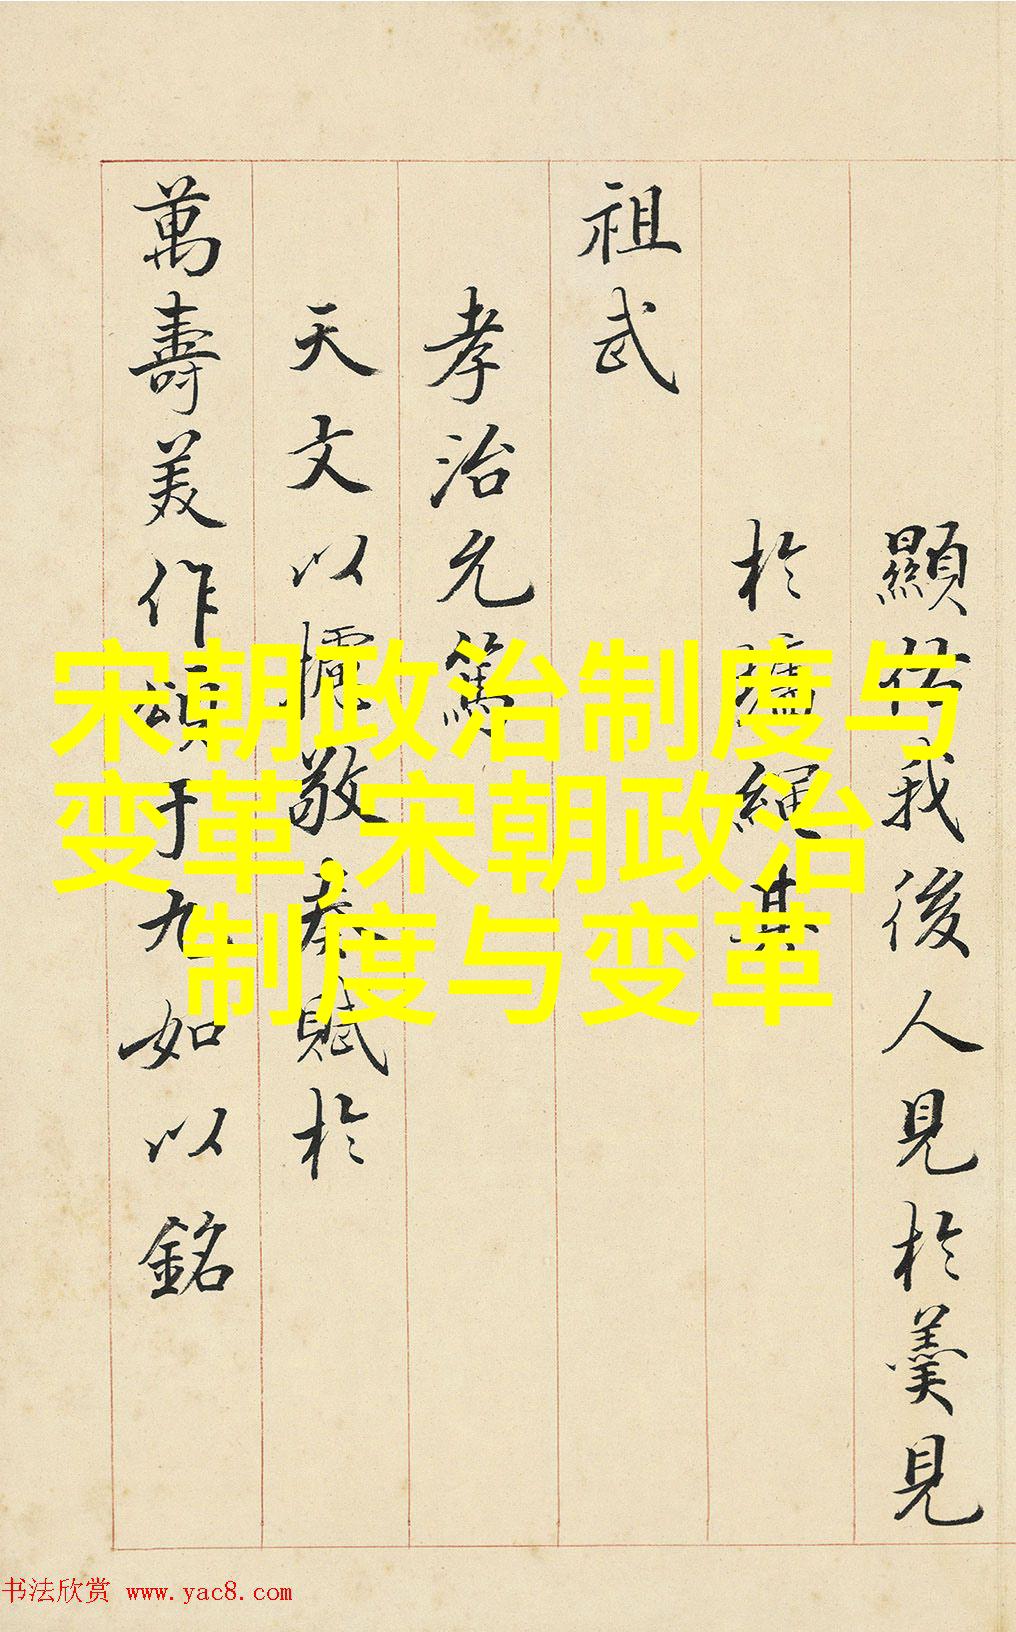 顯我後人見於羹見
於繩其
祖武
孝治允篤
天文以敬賦於
萬壽美作頌于九如以銘
宋朝政治制度与
变革,宋朝政治
制度与变革
书法欣赏 www.yac8.com